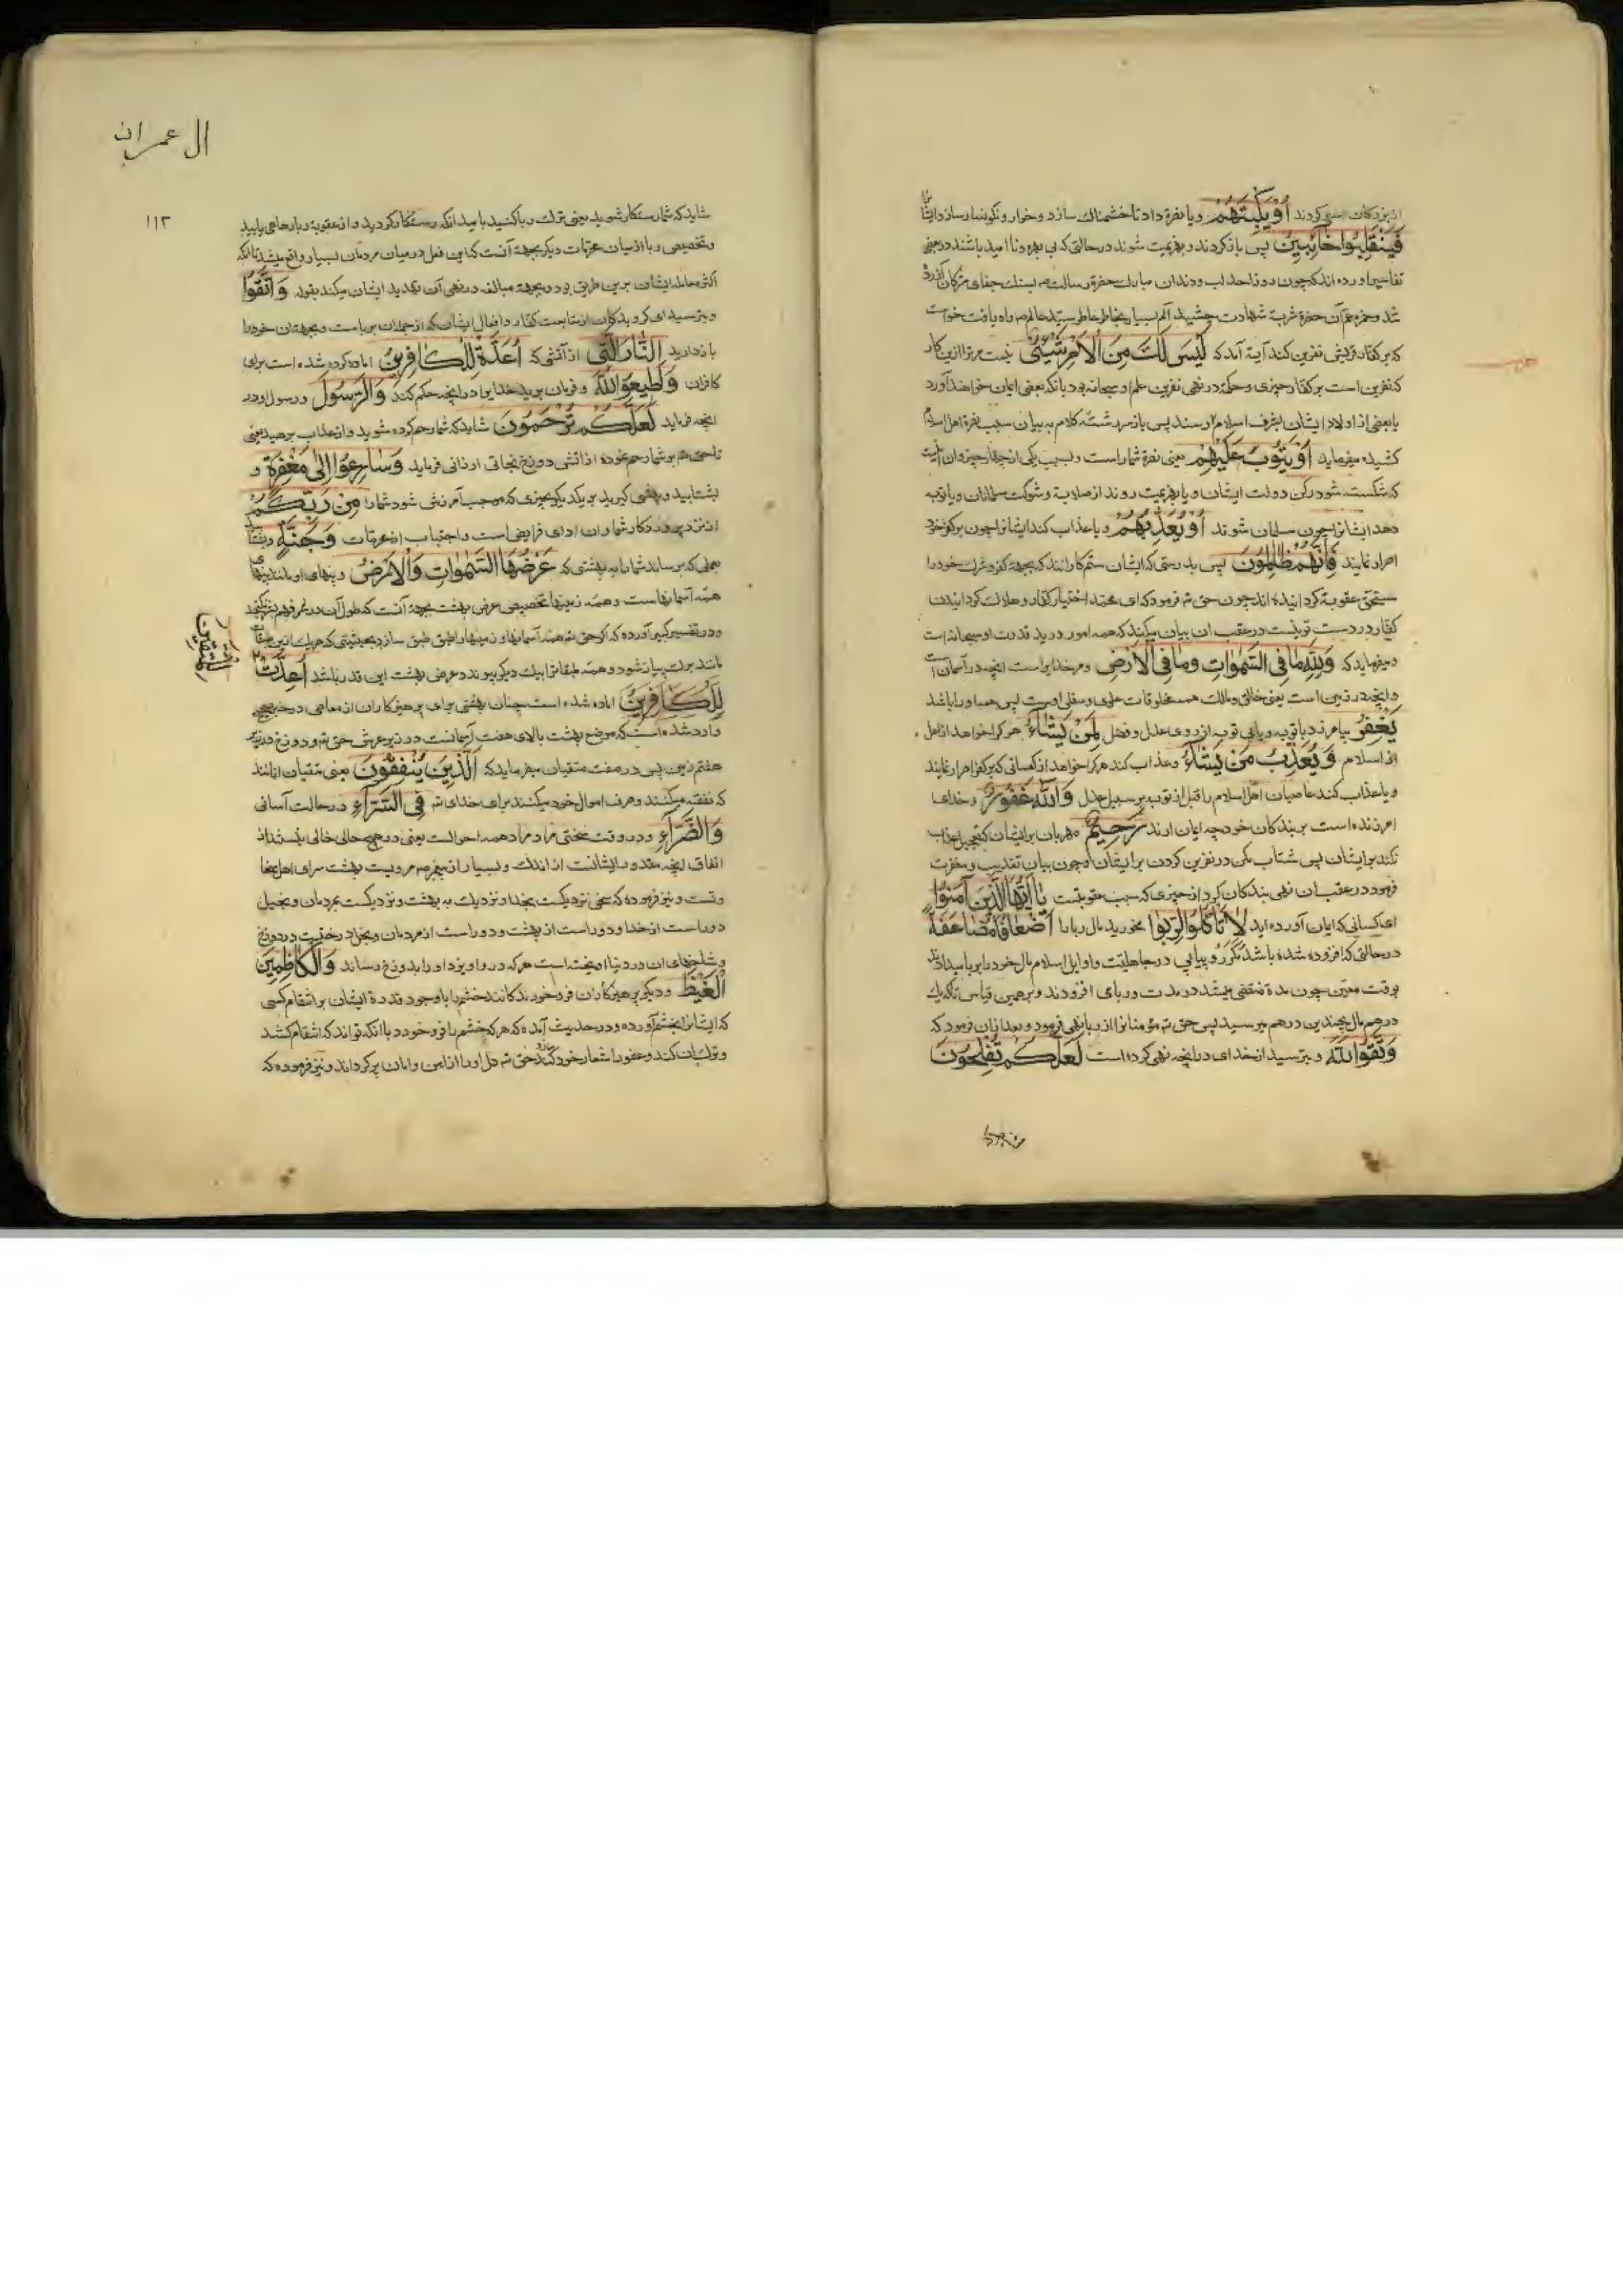 از بزرگان اسیر کردند أَوْ يَكْبِتَهُمْ و یا نصرة داد تا خشمناک سازد و خوار و نگونسار سازد ایشانرا
فَيَنْقَلِبُوا خَائِبِينَ پس باز گردند و بهزیمت شوند در حالتی که بی بهره و ناامید باشند در بعضی
تفاسیر آورده اند که چون روز احد لب و دندان مبارک حضرة رسالت صم بسنگ جفای مشرکان آزرده
شد و حمزه عم آن حضرة شربة شهادت چشید الم بسیار بخاطر عاطر سید عالم صم راه یافت خواست
که بر کفار قریش نفرین کند آیة آمد که لَيْسَ لَكَ مِنَ الْأَمْرِ شَيْءٌ نیست مر ترا ازین کار
که نفرین است بر کفار چیزی و حکمة در نهی نفرین علم او سبحانه بود بانکه بعضی ایمان خواهند آورد
یا بعضی از اولاد ایشان بشرف اسلام رسند پس باز سر رشتهٔ کلام به بیان سبب نصرة اهل اسلام
کشیده میفرماید أَوْ يَتُوبَ عَلَيْهِمْ یعنی نصرة شما راست و لسبب یکی از چهار چیز و ان اینست
که شکسته شود رکن دولت ایشان و یا بهزیمت روند از صلابة و شوکت مسلمانان و یا توبه
دهد ایشانرا چون مسلمان شوند أَوْ يُعَذِّبَهُمْ و یا عذاب کند ایشانرا چون بر کفر خود
اصرار نمایند فَإِنَّهُمْ ظَالِمُونَ پس بدرستی که ایشان ستمکارانند که بجهة کفر و شرک خود را
مستحق عقوبة گردانیده اند چون حق تع فرمود که ای محمد اختیار کفار و هلاک گردانیدن
کفار در دست تو نیست در عقب ان بیان میکند که همه امور در ید قدرت او سبحانه است
و میفرماید که وَلِلَّهِ مَا فِي السَّمٰوَاتِ وَمَا فِي الْأَرْضِ و مر خدایراست انچه در آسمان است
و انچه در زمین است یعنی خالق و مالک همه مخلوقات علوی و سفلی اوست پس همه او را باشد
يَغْفِرُ بیامرزد با توبه و یا بی توبه از روی عدل و فضل لِمَنْ يَشَاءُ هر کرا خواهد از اهل
از اسلام وَيُعَذِّبُ مَنْ يَشَاءُ و عذاب کند هر کرا خواهد از کسانی که بر کفر اصرار نمایند
و یا عذاب کند عاصیان اهل اسلام را قبل از توبه بر سبیل عدل وَاللَّهُ غَفُورٌ و خدای
امرزنده است بر بندگان خود چه ایمان ارند رَحِيمٌ مهربان بر ایشان که تعجیل عذاب
نکند بر ایشان پس شتاب مکن در نفرین کردن بر ایشان و چون بیان تعذیب و مغفرت
فرمود در عقب ان نهی بندگان کرد از چیزی که سبب عقوبتست يَا أَيُّهَا الَّذِينَ آمَنُوا
ای کسانی که ایمان آورده اید لَا تَأْكُلُوا الرِّبٰوا مخورید مال ربا را أَضْعَافًا مُضَاعَفَةً
در حالتی که افزوده شده باشد مکرر و پیاپی در جاهلیت و اوایل اسلام مال خود را بر با میدادند
بوقت معین چون مدة منقضی میشد در مدت و ربای افزودند و برهمین قیاس تا که یک
درهم مال بچندین درهم میرسید پس حق تع مؤمنانرا از ربا نهی فرمود و بعد از ان فرمود که
وَاتَّقُوا اللَّهَ و بترسید از خدای در انچه نهی کرده است لَعَلَّكُمْ تُفْلِحُونَ
ال عمران
۱۱۲
شاید که شما رستگار شوید یعنی ترک ربا کنید بامید انکه رستگار گردید و از عقوبة ربا رهایی یابید
و تخصیص ربا از میان محرمات دیگر بجهة آنست که این فعل در میان مردمان بسیار واقع میشد تا انکه
اکثر معامله ایشان برین طریق بود و بجهة مبالغه در نهی آن تهدید ایشان میکند بقوله وَاتَّقُوا
و بترسید ای گروندگان از متابعت کفار و افعال ایشان که از جمله ان رباست و بجهة ان خود را
باز دارید النَّارَ الَّتِي از آتشی که أُعِدَّةْ لِلْكَافِرِينَ اماده کرده شده است برای
کافران وَأَطِيعُوا اللَّهَ و فرمان برید خدایرا در انچه حکم کند وَالرَّسُولَ و رسول او در
انچه فرماید لَعَلَّكُمْ تُرْحَمُونَ شاید که شما رحم کرده شوید و از عذاب برهید یعنی
تا حق تع بر شما رحم نموده از اتش دوزخ نجاتی ارزانی فرماید وَسَارِعُوا إِلَى مَغْفِرَةٍ و
بشتابید و پیشی گیرید بر یکدیگر بچیزی که موجب آمرزش شود شما را مِنْ رَبِّكُمْ
از نزد پروردگار شما و ان ادای فرایض است و اجتناب از محرمات وَجَنَّةٍ و بشتابید
بعملی که برساند شما را به بهشتی که عَرْضُهَا السَّمٰوَاتُ وَالْأَرْضُ و پهنای او مانند پهنای
همه آسمانهاست و همه زمینها تخصیص عرض بهشت بجهة آنست که طول آن در فهم بشر نگنجد
و در تفسیر کبیر آورده که اکر حق تع همه آسمانها و زمینها را طبق طبق سازد بحیثیتی که هر یک ازین
مانند برگ پیاز شود و همه طبقاترا بیک دیگر پیوند دهد عرض بهشت این قدر باشد أُعِدَّتْ
لِلْكَافِرِينَ اماده شده است چنان بهشتی برای پرهیزکاران از معاصی در خبر صحیح
وارد شده است که موضع بهشت بالای هفت آسمانست در زیر عرش حق تع و دوزخ در زیر
هفتم زمین پس در صفت متقیان میفرماید که الَّذِينَ يُنْفِقُونَ یعنی متقیان انانند
که نفقه میکنند و صرف اموال خود میکنند برای خدای تع فِي السَّرَّاءِ در حالت آسانی
وَالضَّرَّاءِ و در وقت سختی مراد همه احوالست یعنی در هیچ حالی خالی نیستند از
انفاق انچه مقدور ایشانست از اندک و بسیار از پیغمبر صم مرویست بهشت سرای اهل سخا
وتست و نیز فرموده که سخی نزدیکست بخدا و نزدیک به بهشت و نزدیکست بمردمان و بخیل
دور است از خدا و دور است از بهشت و دور است از مردمان و بخل درختیست در دوزخ
و شاخهای ان در دنیا اویخته است هر که در او اویزد او را بدوزخ رساند وَالْكَاظِمِينَ
الْغَيْظَ و دیگر پرهیزکاران فرو خورندگانند خشم را با وجود قدرة ایشان بر انتقام کسی
که ایشانرا بخشم آورده و در حدیث آمده که هر که خشم را فرو خورد با انکه تواند که انتقام کشد
و ترک ان کند و عفو را شعار خود سازد حق تع دل او را از امن و امان پر گرداند و نیز فرموده که
للمتقین